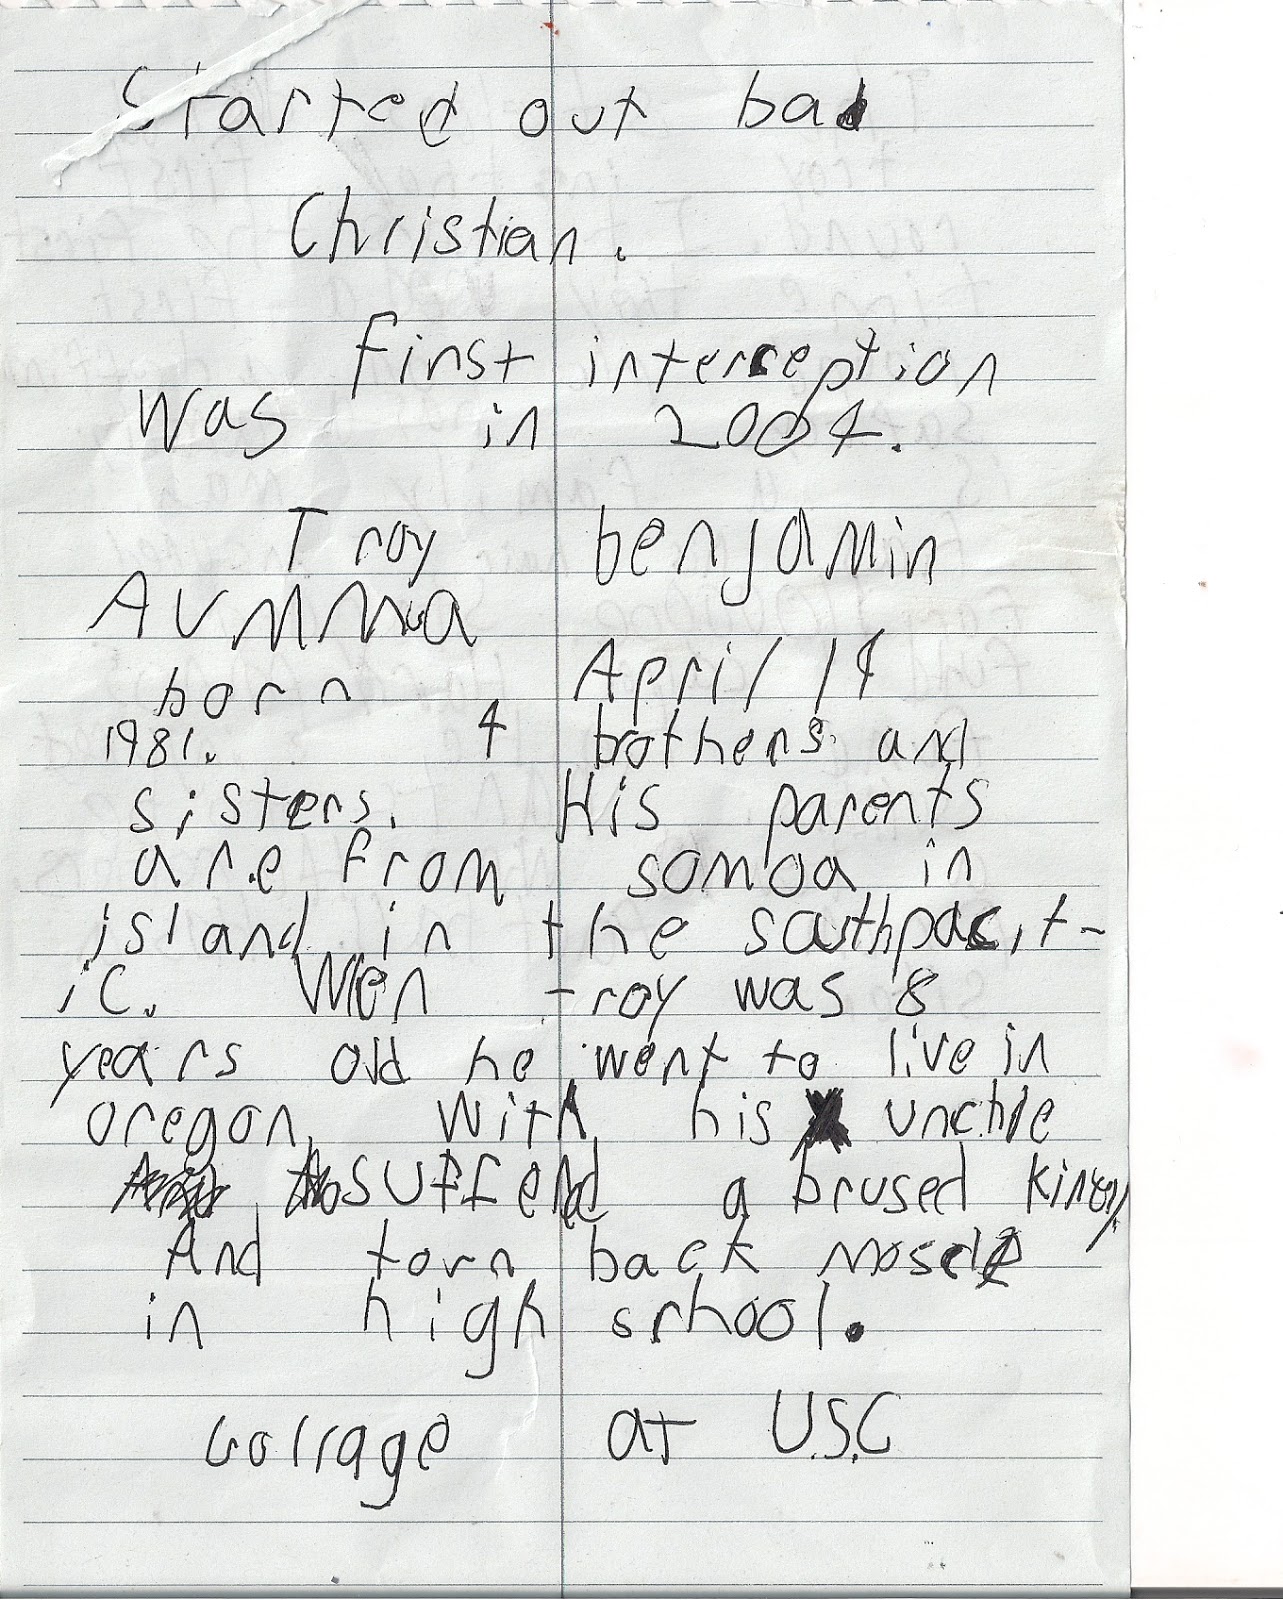 Started out bad
Christian.
first interception
was in 2004.
Troy benjamin
Aummua
born April 14
1981. 4 brothers and
sisters. His parents
are from somoa in
island in the southpacit-
ic. Wen troy was 8
years old he went to live in
oregon, with his unclle
suffeed a brused kiney
And torn back moscle
in high school.
Collage at U.S.C